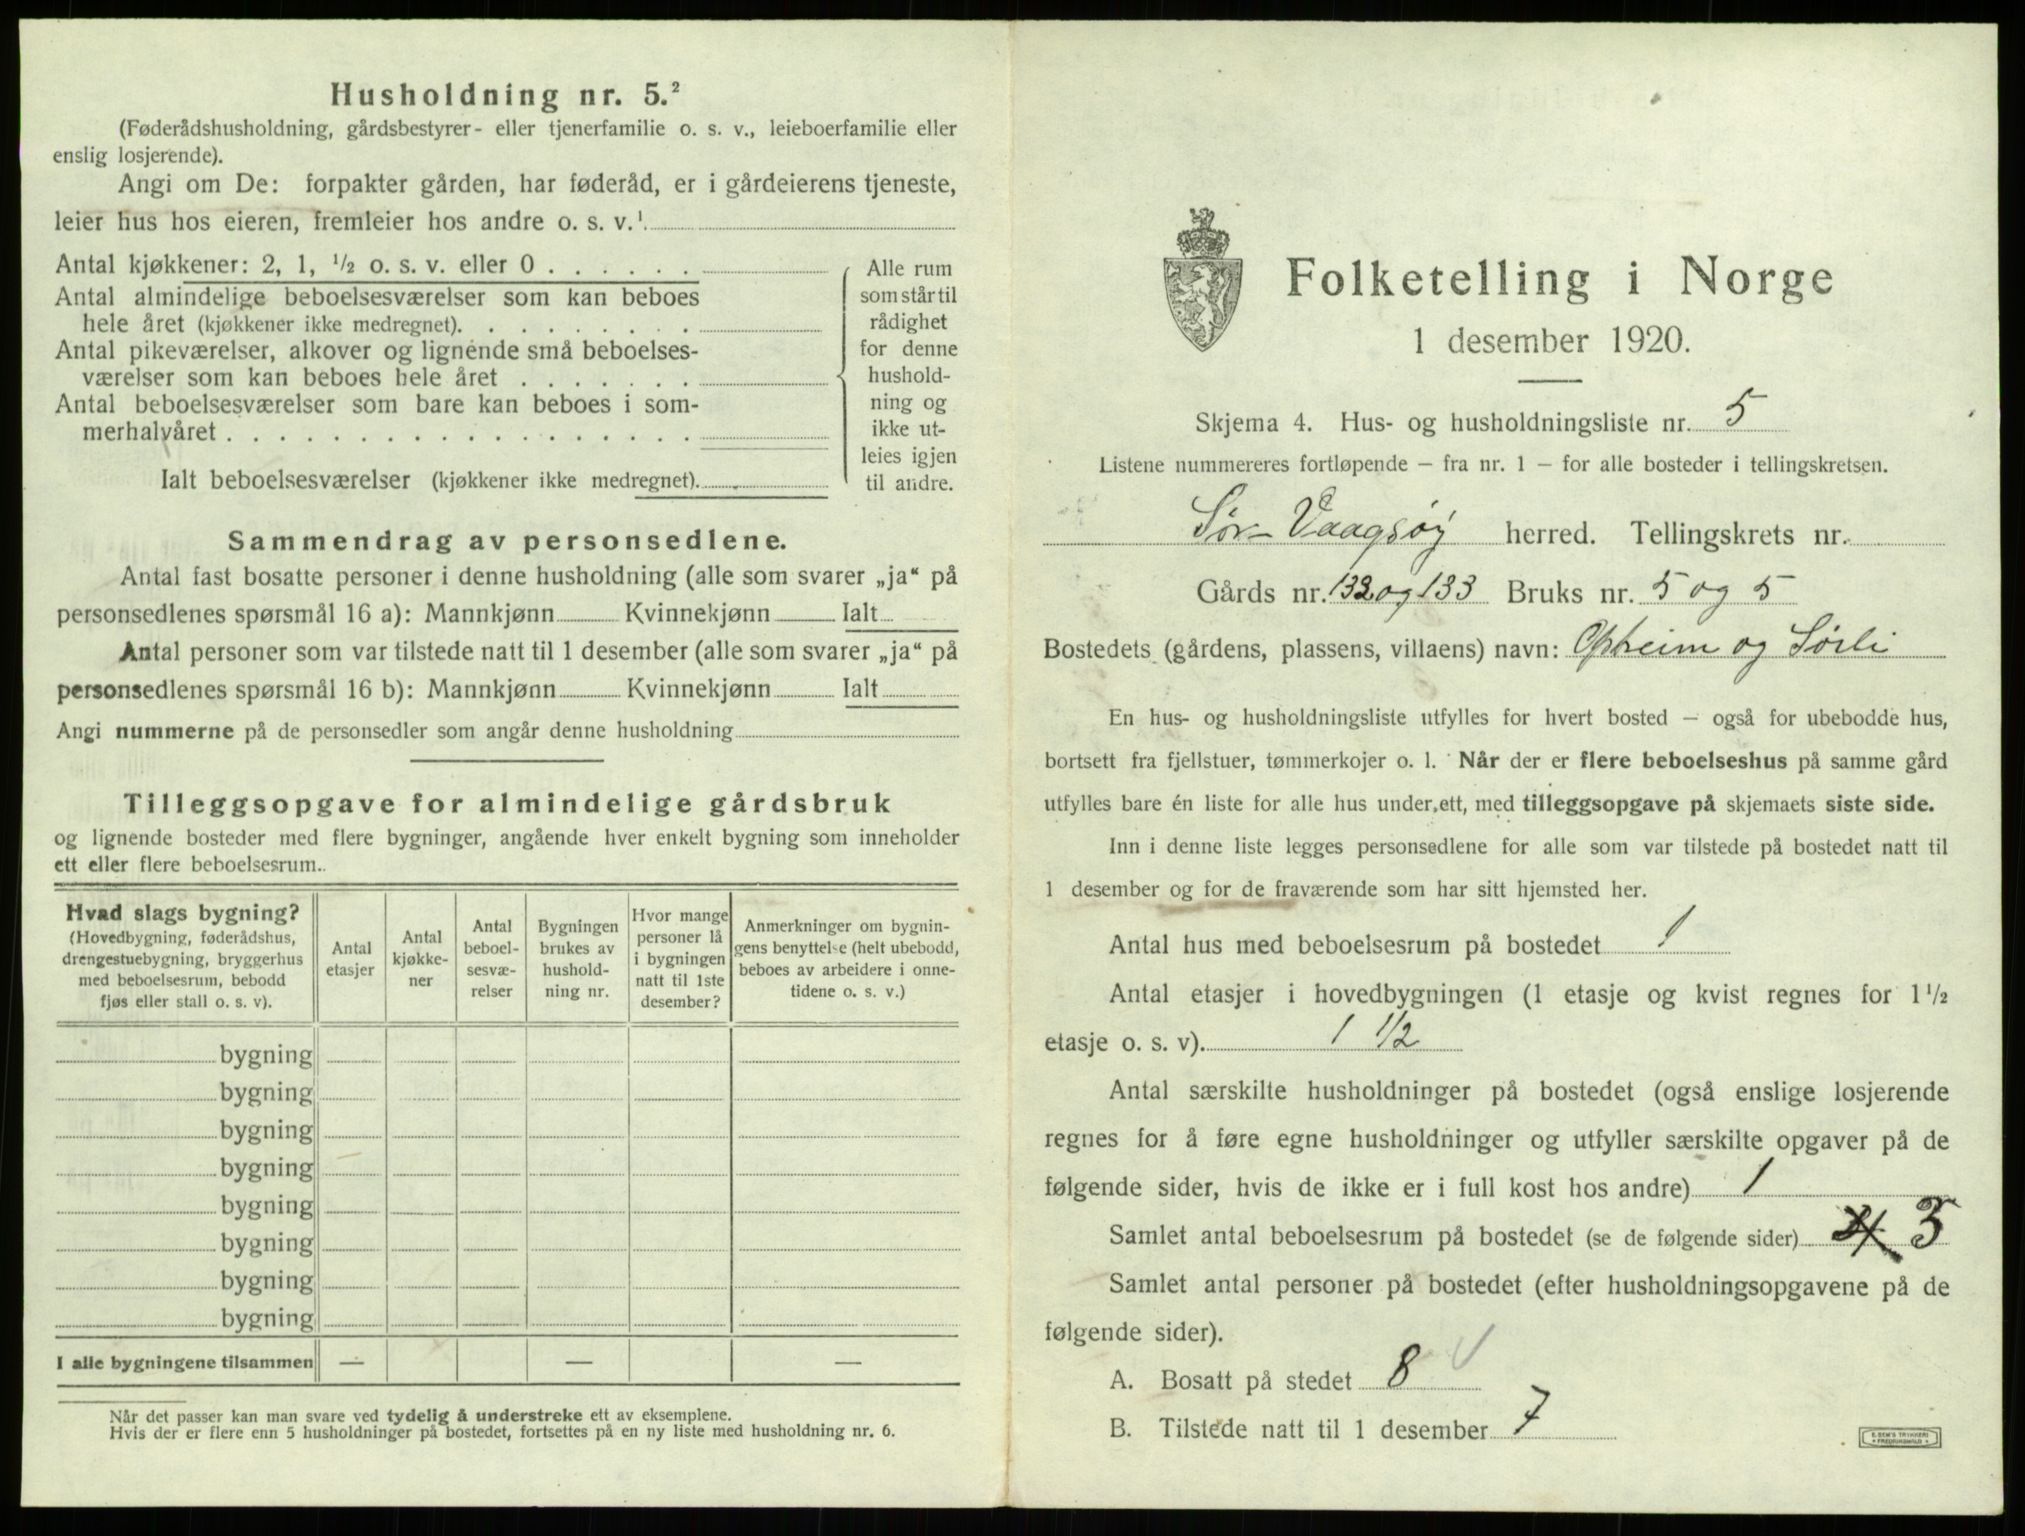 Husholdning nr. 5.²
(Føderådshusholdning, gårdsbestyrer- eller tjenerfamilie o. s. v., leieboerfamilie eller
enslig losjerende).
Angi om De: forpakter gården, har føderåd, er i gårdeierens tjeneste,
leier hus hos eieren, fremleier hos andre o. s. v.¹
Antal kjøkkener: 2, 1, ½ o. s. v. eller 0 . . . . . .
Antal almindelige beboelsesværelser som kan beboes
hele året (kjøkkener ikke medregnet). . . . . . . . .
Antal pikeværelser, alkover og lignende små beboelses-
værelser som kan beboes hele året . . . . . . .
Antal beboelsesværelser som bare kan beboes i som-
merhalvåret . . . . . . . . . . . . . . . . . .
Ialt beboelsesværelser (kjøkkener ikke medregnet).
Alle rum
som står til
rådighet
for denne
hushold-
ning og
ikke ut-
leies igjen
til andre.
Sammendrag av personsedlene.
Antal fast bosatte personer i denne husholdning (alle som svarer „ja“ på
personsedlenes spørsmål 16 a): Mannkjønn Kvinnekjønn Ialt
Antal personer som var tilstede natt til 1 desember (alle som svarer „ja“ på
personsedlenes spørsmål 16 b): Mannkjønn Kvinnekjønn Ialt
Angi nummerne på de personsedler som angår denne husholdning
Tilleggsopgave for almindelige gårdsbruk
og lignende bosteder med flere bygninger, angående hver enkelt bygning som inneholder
ett eller flere beboelsesrum.
Hvad slags bygning?
(Hovedbygning, føderådshus,
drengestuebygning, bryggerhus
med beboelsesrum, bebodd
fjøs eller stall o. s. v).
Antal
etasjer
Antal
kjøkke-
ner
Antal
beboel-
sesvæ-
relser
Bygningen
brukes av
hushold-
ning nr.
Hvor mange
personer lå
i bygningen
natt til 1ste
desember?
Anmerkninger om bygnin-
gens benyttelse (helt ubebodd,
beboes av arbeidere i onne-
tidene o. s. v.)
bygning
bygning
bygning
bygning
bygning
bygning
bygning
bygning
I alle bygningene tilsammen — — —
Når det passer kan man svare ved tydelig å understreke ett av eksemplene.
Hvis der er flere enn 5 husholdninger på bostedet, fortsettes på en ny liste med husholdning nr. 6.
Folketelling i Norge
1 desember 1920.
Skjema 4. Hus- og husholdningsliste nr. 5
Listene nummereres fortløpende – fra nr. 1 – for alle bosteder i tellingskretsen.
Sør-Vaagsøy herred. Tellingskrets nr.
Gårds nr. 132 og 133 Bruks nr. 5 og 5
Bostedets (gårdens, plassens, villaens) navn: Opheim og Sørli
En hus- og husholdningsliste utfylles for hvert bosted – også for ubebodde hus,
bortsett fra fjellstuer, tømmerkojer o. l. Når der er flere beboelseshus på samme gård
utfylles bare én liste for alle hus under ett, med tilleggsopgave på skjemaets siste side.
Inn i denne liste legges personsedlene for alle som var tilstede på bostedet natt til
1 desember og for de fraværende som har sitt hjemsted her.
Antal hus med beboelsesrum på bostedet 1
Antal etasjer i hovedbygningen (1 etasje og kvist regnes for 1½
etasje o. s. v). 1 1/2
Antal særskilte husholdninger på bostedet (også enslige losjerende
regnes for å føre egne husholdninger og utfyller særskilte opgaver på de
følgende sider, hvis de ikke er i full kost hos andre) 1
Samlet antal beboelsesrum på bostedet (se de følgende sider) 3
Samlet antal personer på bostedet (efter husholdningsopgavene på de
følgende sider).
A. Bosatt på stedet 8
B. Tilstede natt til 1 desember 7
E. SEM'S TRYKKERI
FREDRIKSHALD